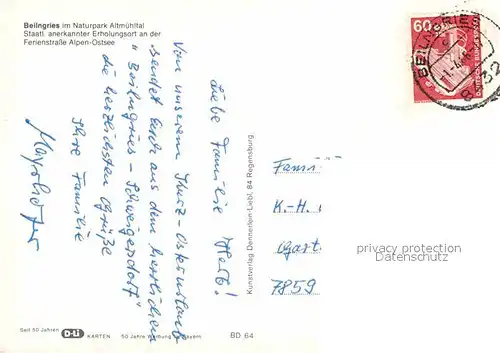 Beilngries im Naturpark Altmühltal
Staatl. anerkannter Erholungsort an der
Ferienstraße Alpen-Ostsee
60
BEILNGRIES
8432
Liebe Familie
Von unserem Kurz-Osterurlaub
sendet Euch aus dem herrlichen
"Beilngries -
die herzlichsten Grüße
Ihre Familie
Kunstverlag Dennerlein-Liebl, 84 Regensburg
Famili
K.-H.
Gart
7859
privacy protection
Datenschutz
Seit 50 Jahren D-Li KARTEN 50 Jahre Werbung Bayern
BD 64